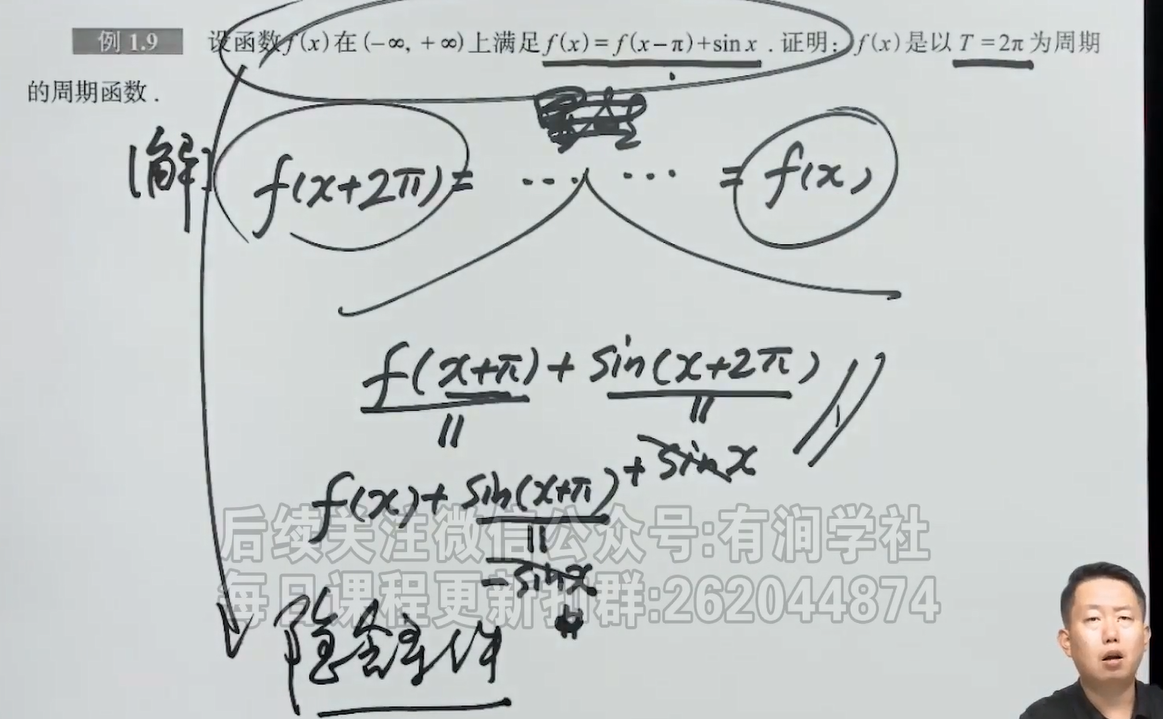 例 1.9 设函数 f(x) 在 (-∞, +∞) 上满足 f(x) = f(x-π) + sin x . 证明: f(x) 是以 T = 2π 为周期
的周期函数 .
[解] f(x+2π) = ... ... = f(x)
f(x+π) + sin(x+2π)
|| ||
f(x) + sin(x+π) + sin x
||
- sin x
后续关注微信公众号:有涧学社
每日课程更新扣群:262044874
隐含条件